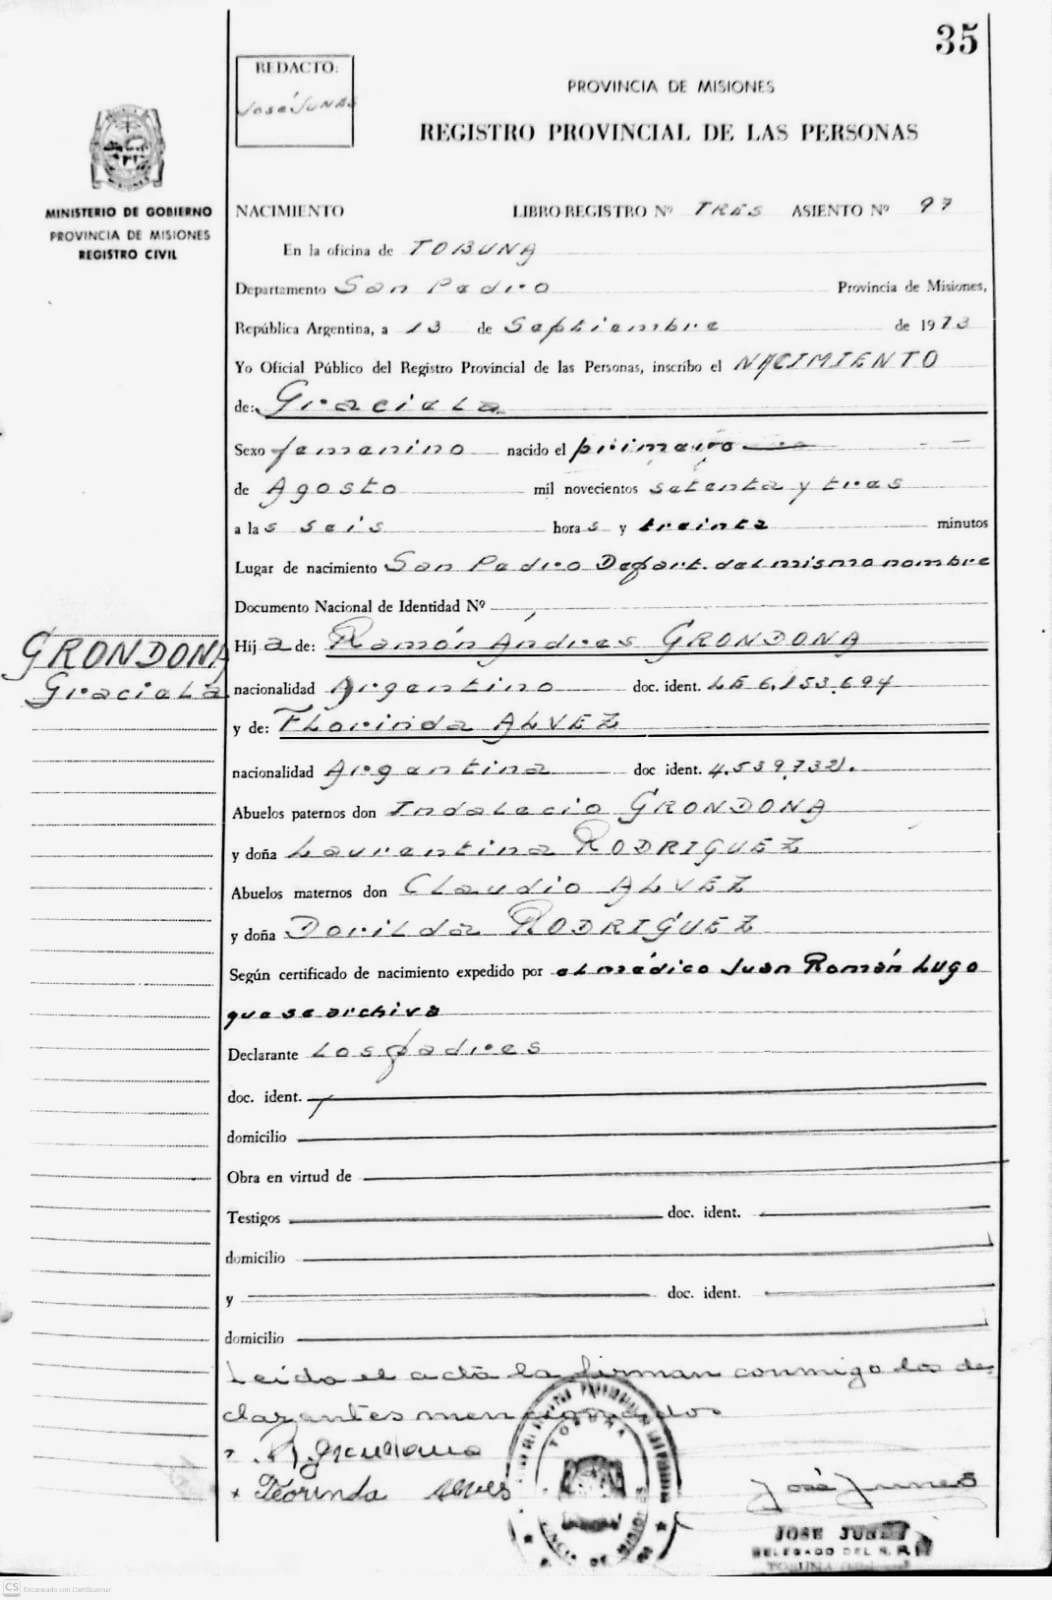 35
REDACTO:
José Junes
PROVINCIA DE MISIONES
REGISTRO PROVINCIAL DE LAS PERSONAS
MINISTERIO DE GOBIERNO
PROVINCIA DE MISIONES
REGISTRO CIVIL
NACIMIENTO LIBRO-REGISTRO Nº TRES ASIENTO Nº 97
En la oficina de TOBUNA
Departamento San Pedro Provincia de Misiones,
República Argentina, a 13 de Saptiembre de 1973
Yo Oficial Público del Registro Provincial de las Personas, inscribo el NACIMIENTO
de: Graciela
Sexo femenino nacido el primero
de Agosto mil novecientos setenta y tres
a las seis horas y treinta minutos
Lugar de nacimiento San Pedro Depart. del mismo nombre
Documento Nacional de Identidad Nº
GRONDONA
Graciela
Hija de: Ramón Andres GRONDONA
nacionalidad Argentino doc. ident. LE 6.153.694
y de: Florinda ALVEZ
nacionalidad Argentina doc ident. 4.539.732.
Abuelos paternos don Indalecio GRONDONA
y doña Laurentina RODRIGUEZ
Abuelos maternos don Claudio ALVEZ
y doña Dorilda RODRIGUEZ
Según certificado de nacimiento expedido por el médico Juan Román Lugo
que se archiva
Declarante Los padres
doc. ident.
domicilio
Obra en virtud de
Testigos doc. ident.
domicilio
y doc. ident.
domicilio
Leída el acta la firman conmigo los de-
clarantes mencionados
Florinda Alves
José Junes
TOBUNA
JOSE JUNES
DELEGADO DEL R. P.
TOBUNA
CS Escaneado con CamScanner